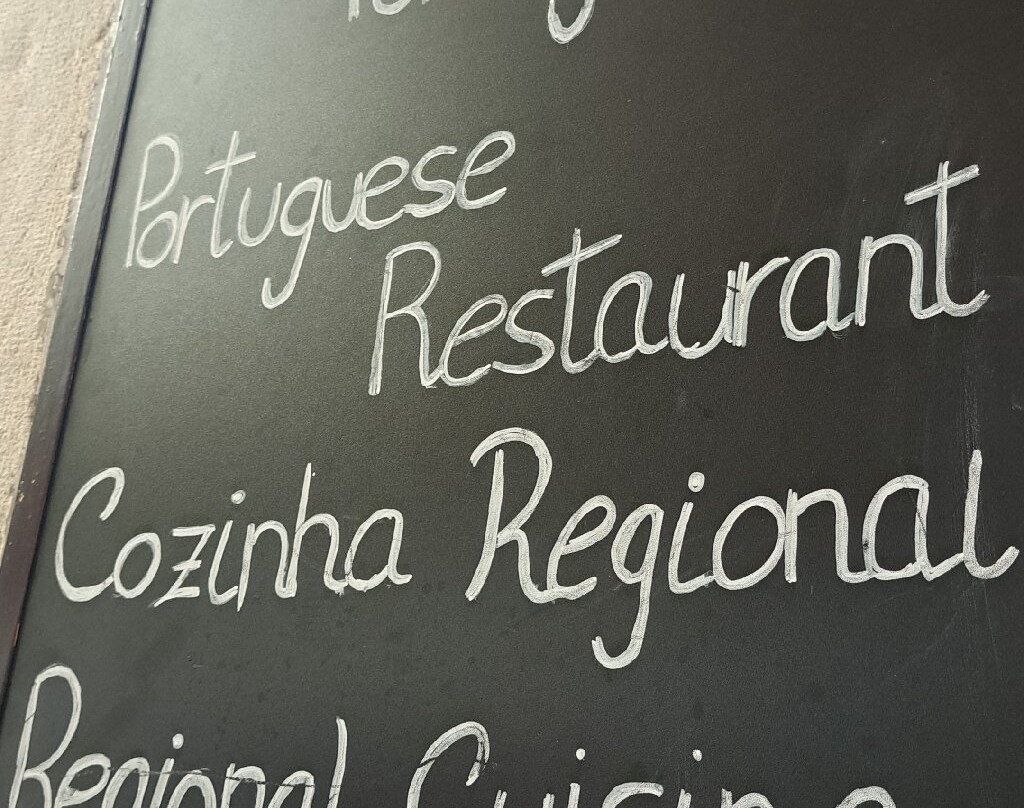 Portuguese
Restaurant
Cozinha Regional
Regional Cuisine